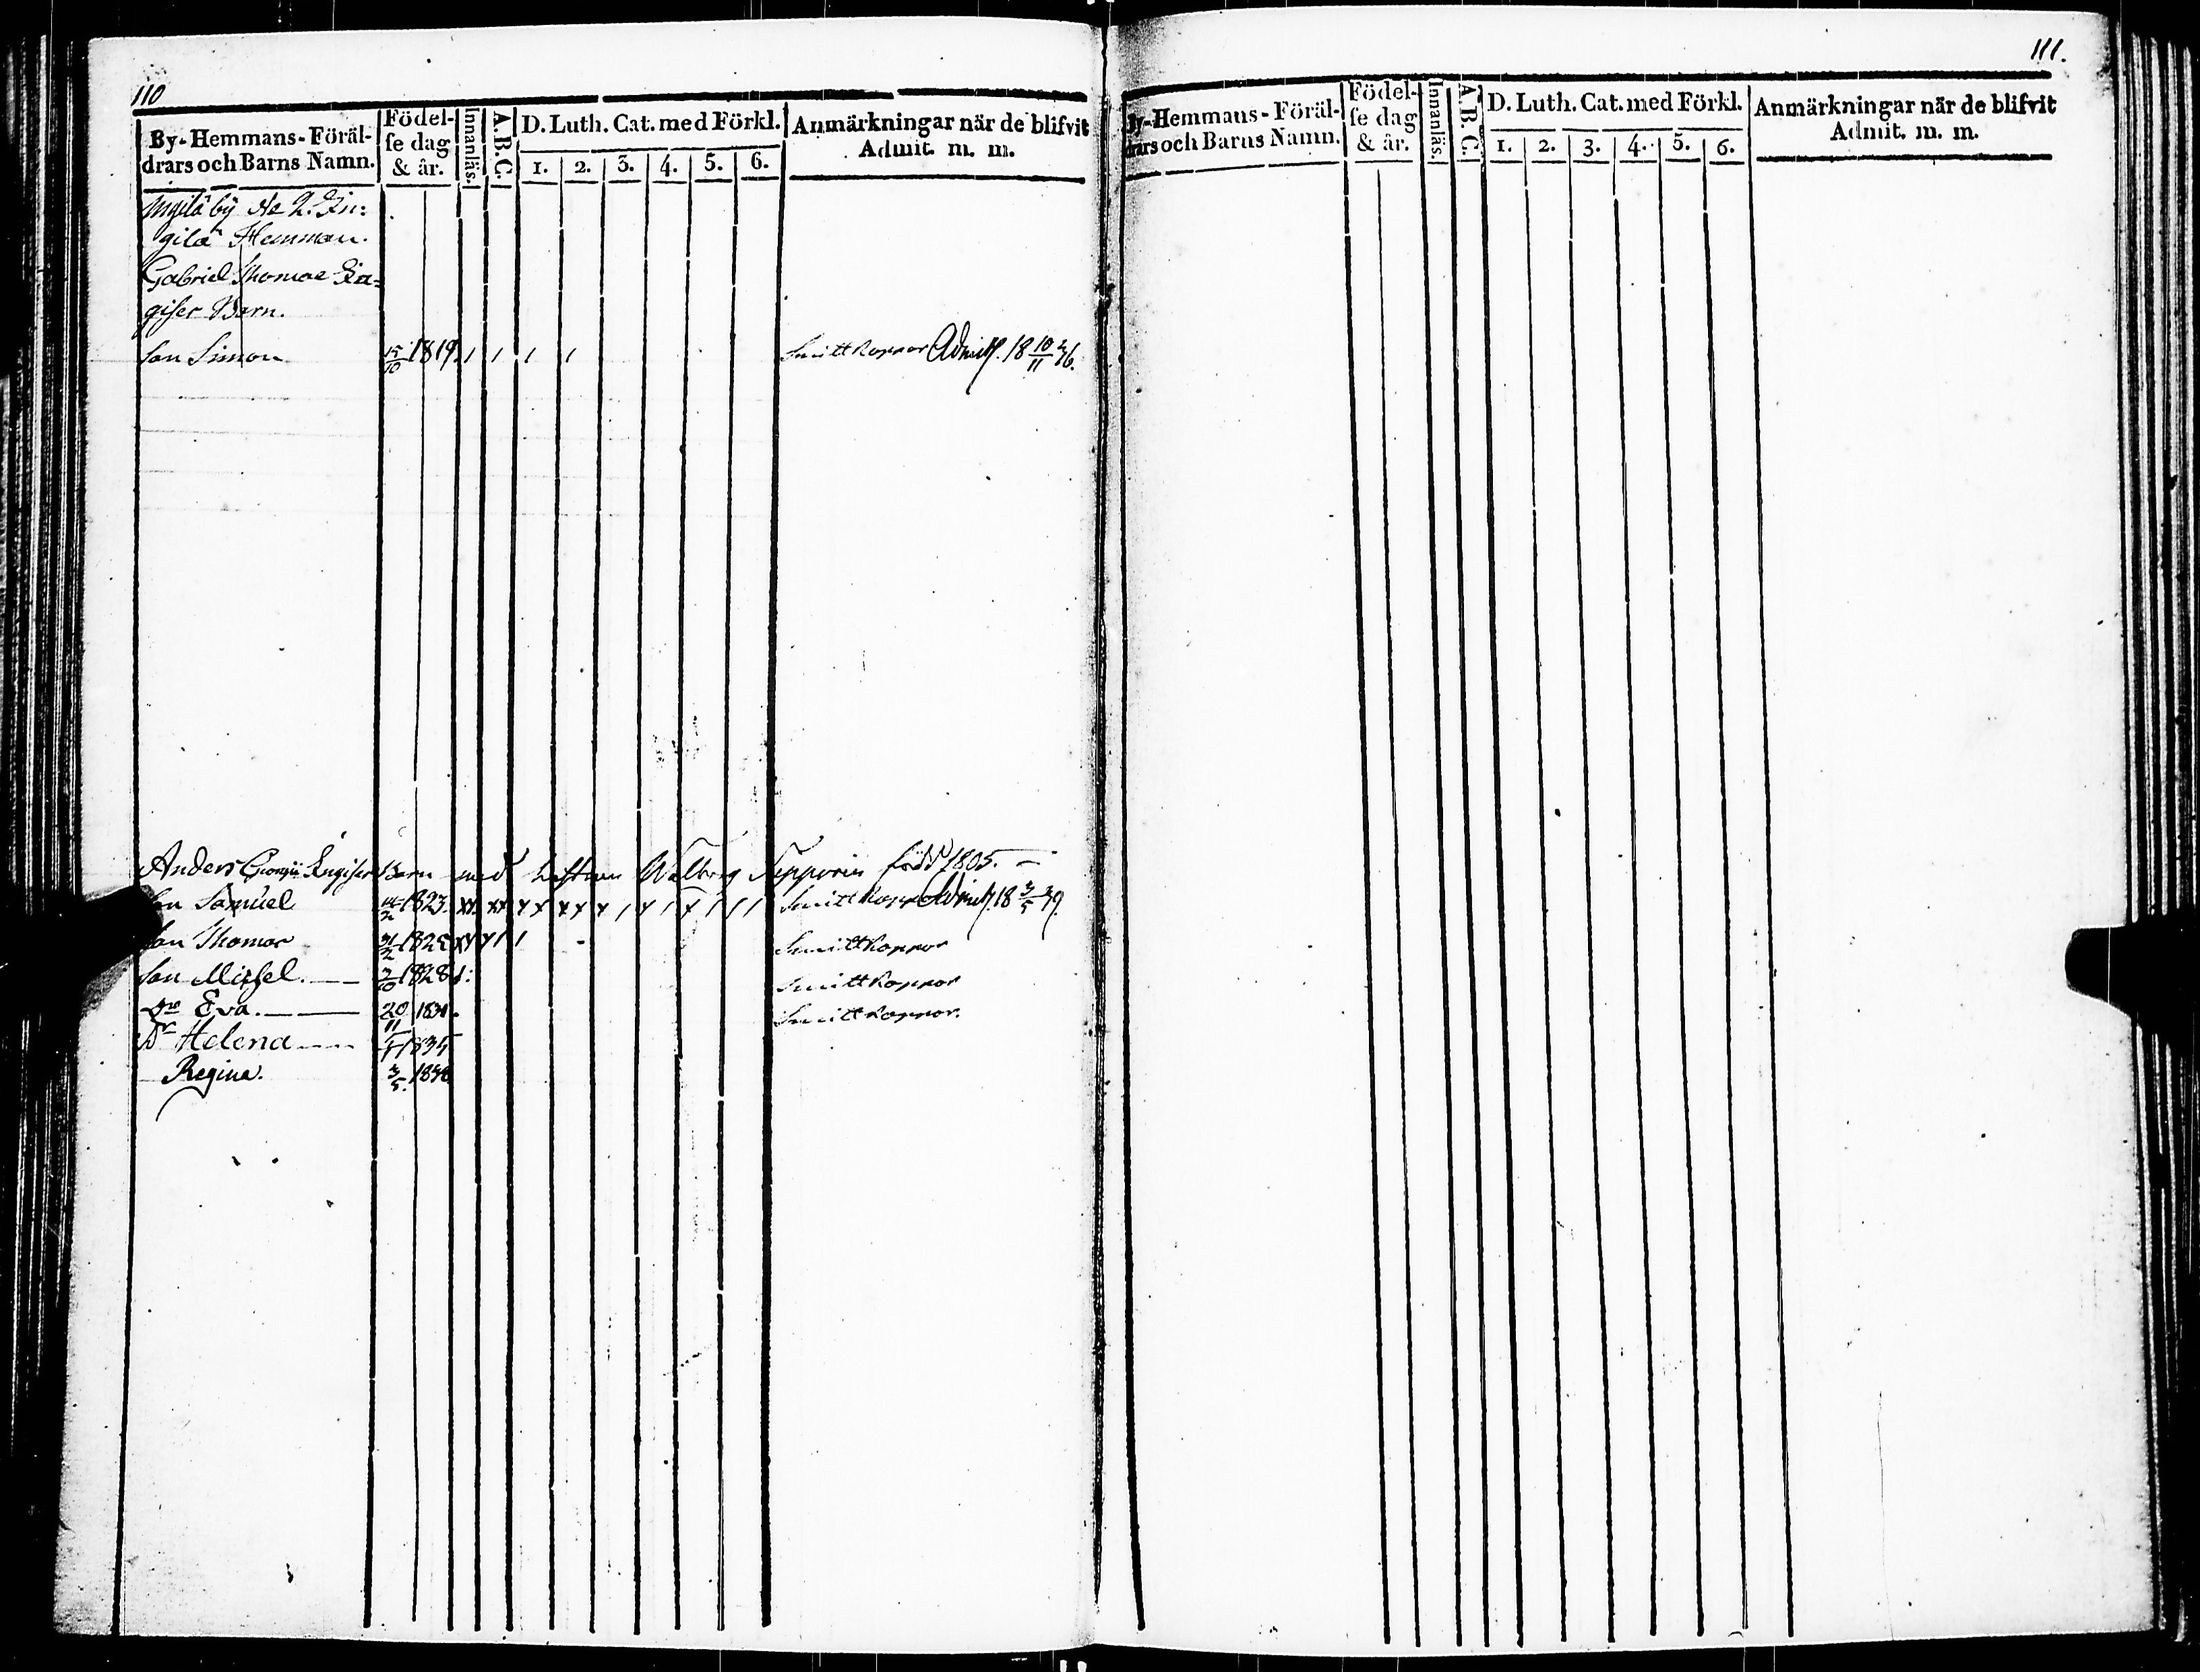 110
By-Hemmans-Föräl-
drars och Barns Namn.
Födel-
se dag
& år.
Innanläs.
A.B.C.
D. Luth. Cat. med Förkl.
1. 2. 3. 4. 5. 6.
Anmärkningar när de blifvit
Admit. m. m.
Ingilä by No 2. In:
gilä Hemman.
Gabriel Thomae In=
giser Barn.
Son Simon 15/10 1819. Smittkoppor Admitt. 18 10/11 36.
Anders Georgii Ingiser Barn med hustrun Walborg Sipporin född 1805. —
Son Samuel 1823. Smittkopp Admitt. 18 3/5 39.
Son Thomas 1825 Smittkoppor
Son Michel. — 3/10 1828 Smittkoppor
Dr Eva. — 20/11 1831. Smittkoppor.
Dr Helena — 1835
Regina. 3/5. 1838
111.
By-Hemmans-Föräl-
drars och Barns Namn.
Födel-
se dag
& år.
Innanläs.
A.B.C.
D. Luth. Cat. med Förkl.
1. 2. 3. 4. 5. 6.
Anmärkningar när de blifvit
Admit. m. m.